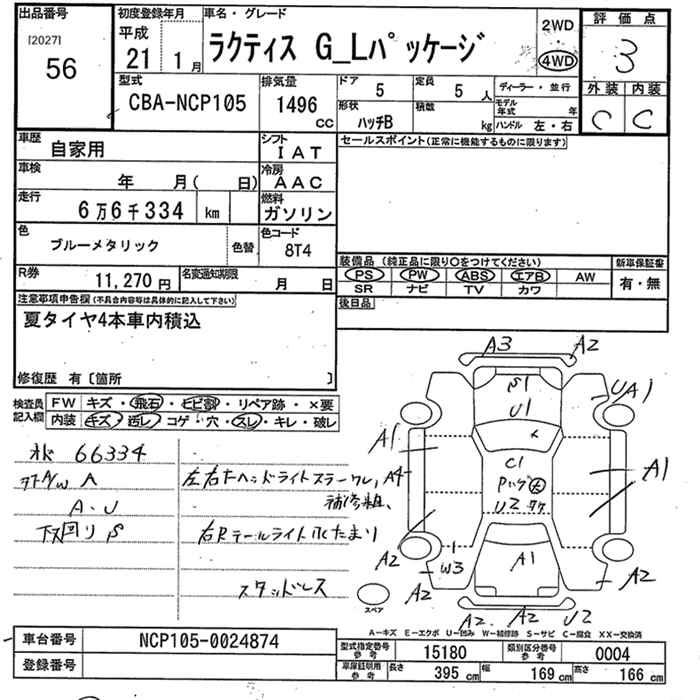 出品番号
[2027]
56
初度登録年月
平成
21 1月
車名・グレード
ラクティス G_Lパッケージ
2WD
4WD
評価点
3
外装 内装
C C
型式
CBA-NCP105
排気量
1496
cc
ドア 5
定員 5 人
ディーラー・並行
形状 ハッチB
積載 kg
モデル年式 年
ハンドル 左・右
車歴
自家用
シフト
IAT
セールスポイント(正常に機能するものに限ります)
車検
年 月( 日)
冷房
AAC
走行
6万6千334 km
燃料
ガソリン
色
ブルーメタリック
色替
色コード
8T4
装備品(純正品に限り○をつけてください)
新車保証書
PS PW ABS エアB AW
SR ナビ TV カワ
有・無
R券
11,270円
名変通知期限
月 日
後日品
注意事項申告欄(不具合内容等は具体的に記入して下さい)
夏タイヤ4本車内積込
修復歴 有〔箇所 〕
検査員記入欄
FW キズ・飛石・ヒビ割・リペア跡・×要
内装 キズ・汚レ・コゲ・穴・スレ・キレ・破レ
66334
A
A.U
左右Fヘッドライトスラーウレ,
補修粗、
右Rテールライト水たまり
スタッドレス
A3
A2
S1
U1
UA1
A1
A4
C1
Pハゲ大
U2
A1
A2
W3
A1
A2
A2
スペア
A2 A2 U2
A-キズ E-エクボ U-凹み W-補修跡 S-サビ C-腐食 XX-交換済
車台番号
NCP105-0024874
型式指定番号 参考
15180
類別区分番号 参考
0004
登録番号
車庫証明用 参考
長さ 395 cm
幅 169 cm
高さ 166 cm